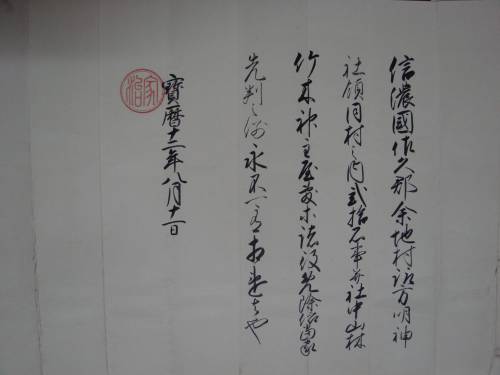 信濃國佐久郡余地村諏方明神
社領同村之内弐拾石事并社中山林
竹木神主屋敷等諸役免除依當家
先判之例永不可有相違者也
寶暦十二年八月十一日
家治